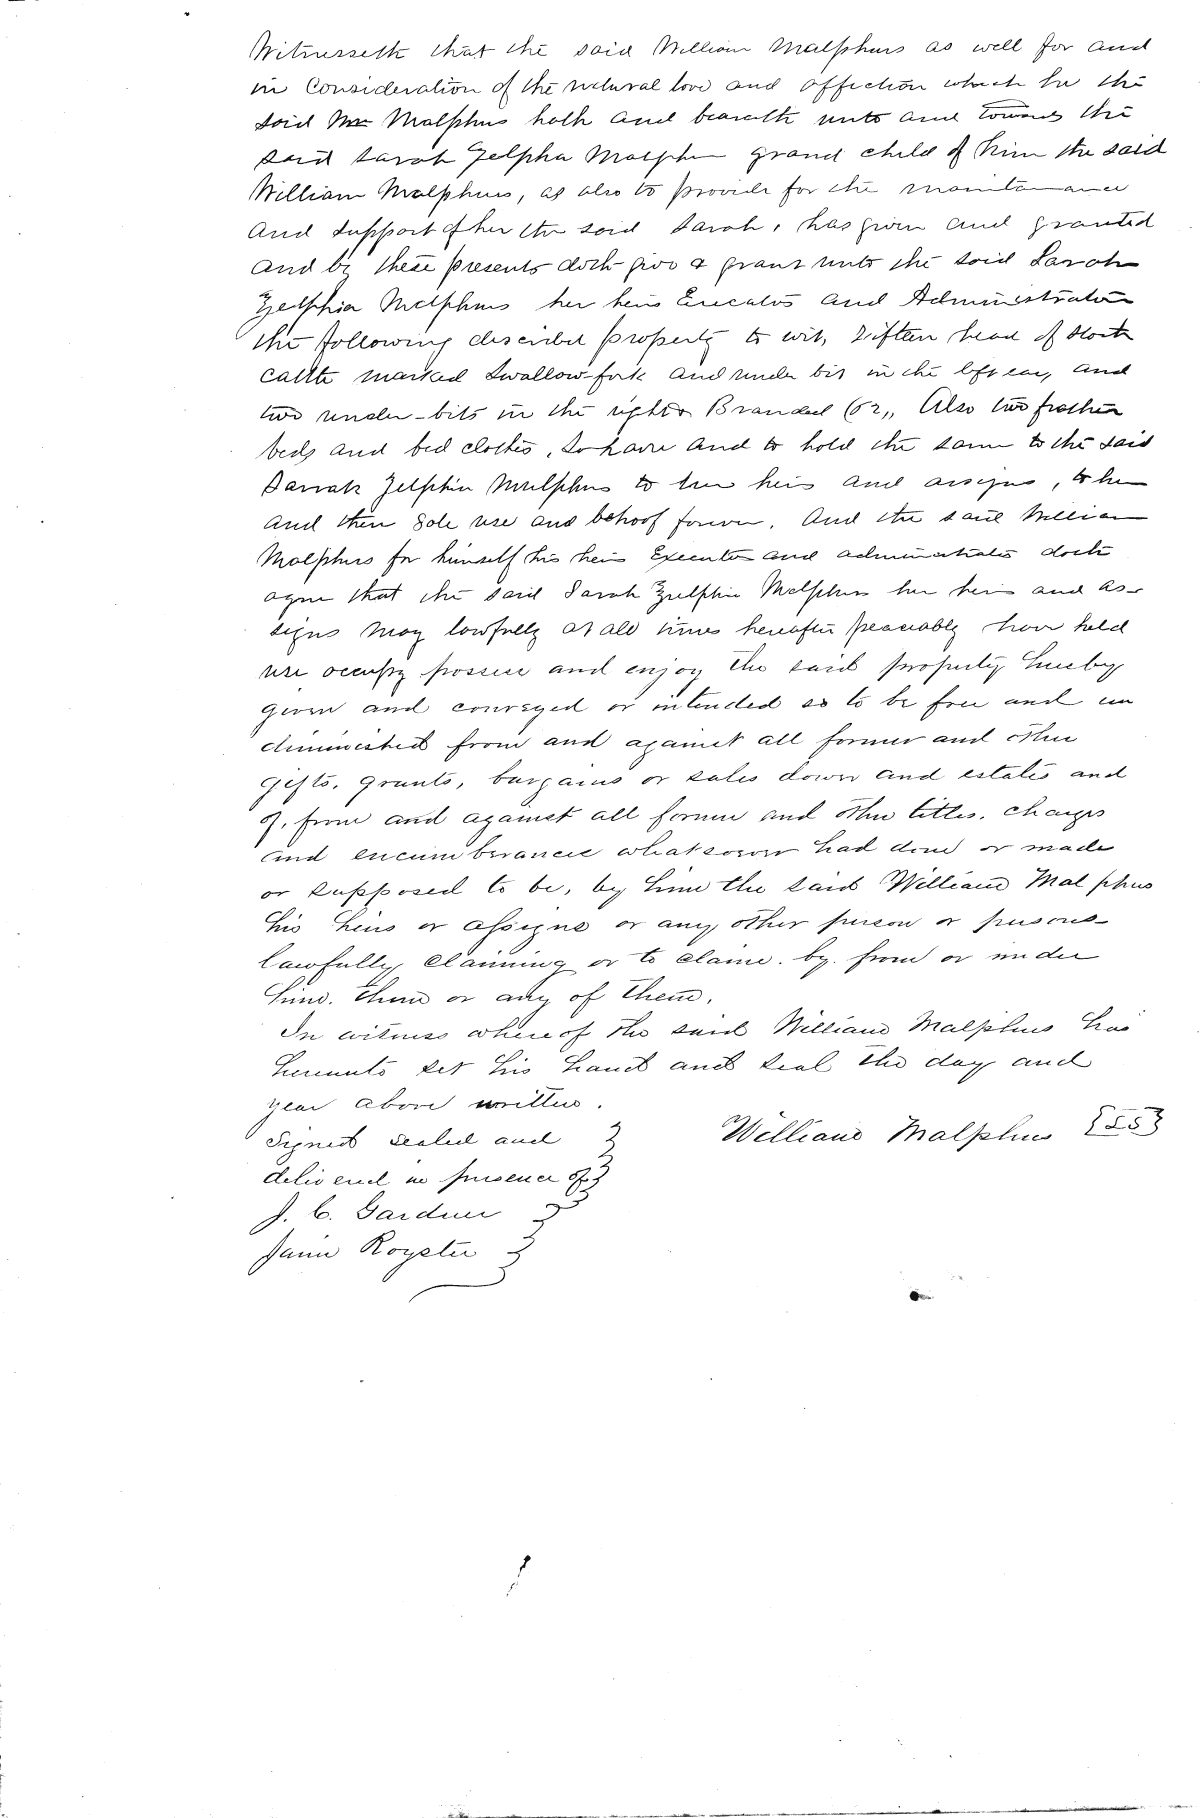 Witnesseth that the said William Malphus as well for and
in Consideration of the natural love and affection which he the
said Wm Malphus hath and beareth unto and towards the
said Sarah Zelpha Malphus grand child of him the said
William Malphus, as also to provide for the maintenance
and support of her the said Sarah, has given and granted
and by these presents doth give & grant unto the said Sarah
Zelphia Malphus her heirs Executors and Administrators
the following described property to wit, Fifteen head of Stock
Cattle marked Swallow-fork and under bit in the left ear, and
two under-bits in the right & Branded Also two feather
beds and bed clothes, to have and to hold the same to the said
Sarrah Zelphia Malphus to her heirs and assigns, to her
and their Sole use and behoof forever. And the said William
Malphus for himself his heirs Executors and administrators doth
agree that the said Sarah Zelphia Malphus her heirs and as-
signs may lawfully at all times hereafter peaceably have hold
use occupy possess and enjoy the said property hereby
given and conveyed or intended so to be free and un
diminished from and against all former and other
gifts, grants, bargains or sales dower and estates and
of, from and against all former and other titles, charges
and encumberances whatsoever had done or made
or supposed to be, by him the said William Malphus
his heirs or assigns or any other person or persons
lawfully claiming or to claim. by. from or under
him. them or any of them.
In witness whereof the said William Malphus has
hereunto set his hand and seal the day and
year above written.
Signed sealed and
William Malphus {SS}
delivered in presence of
J. C. Gardner
Royster